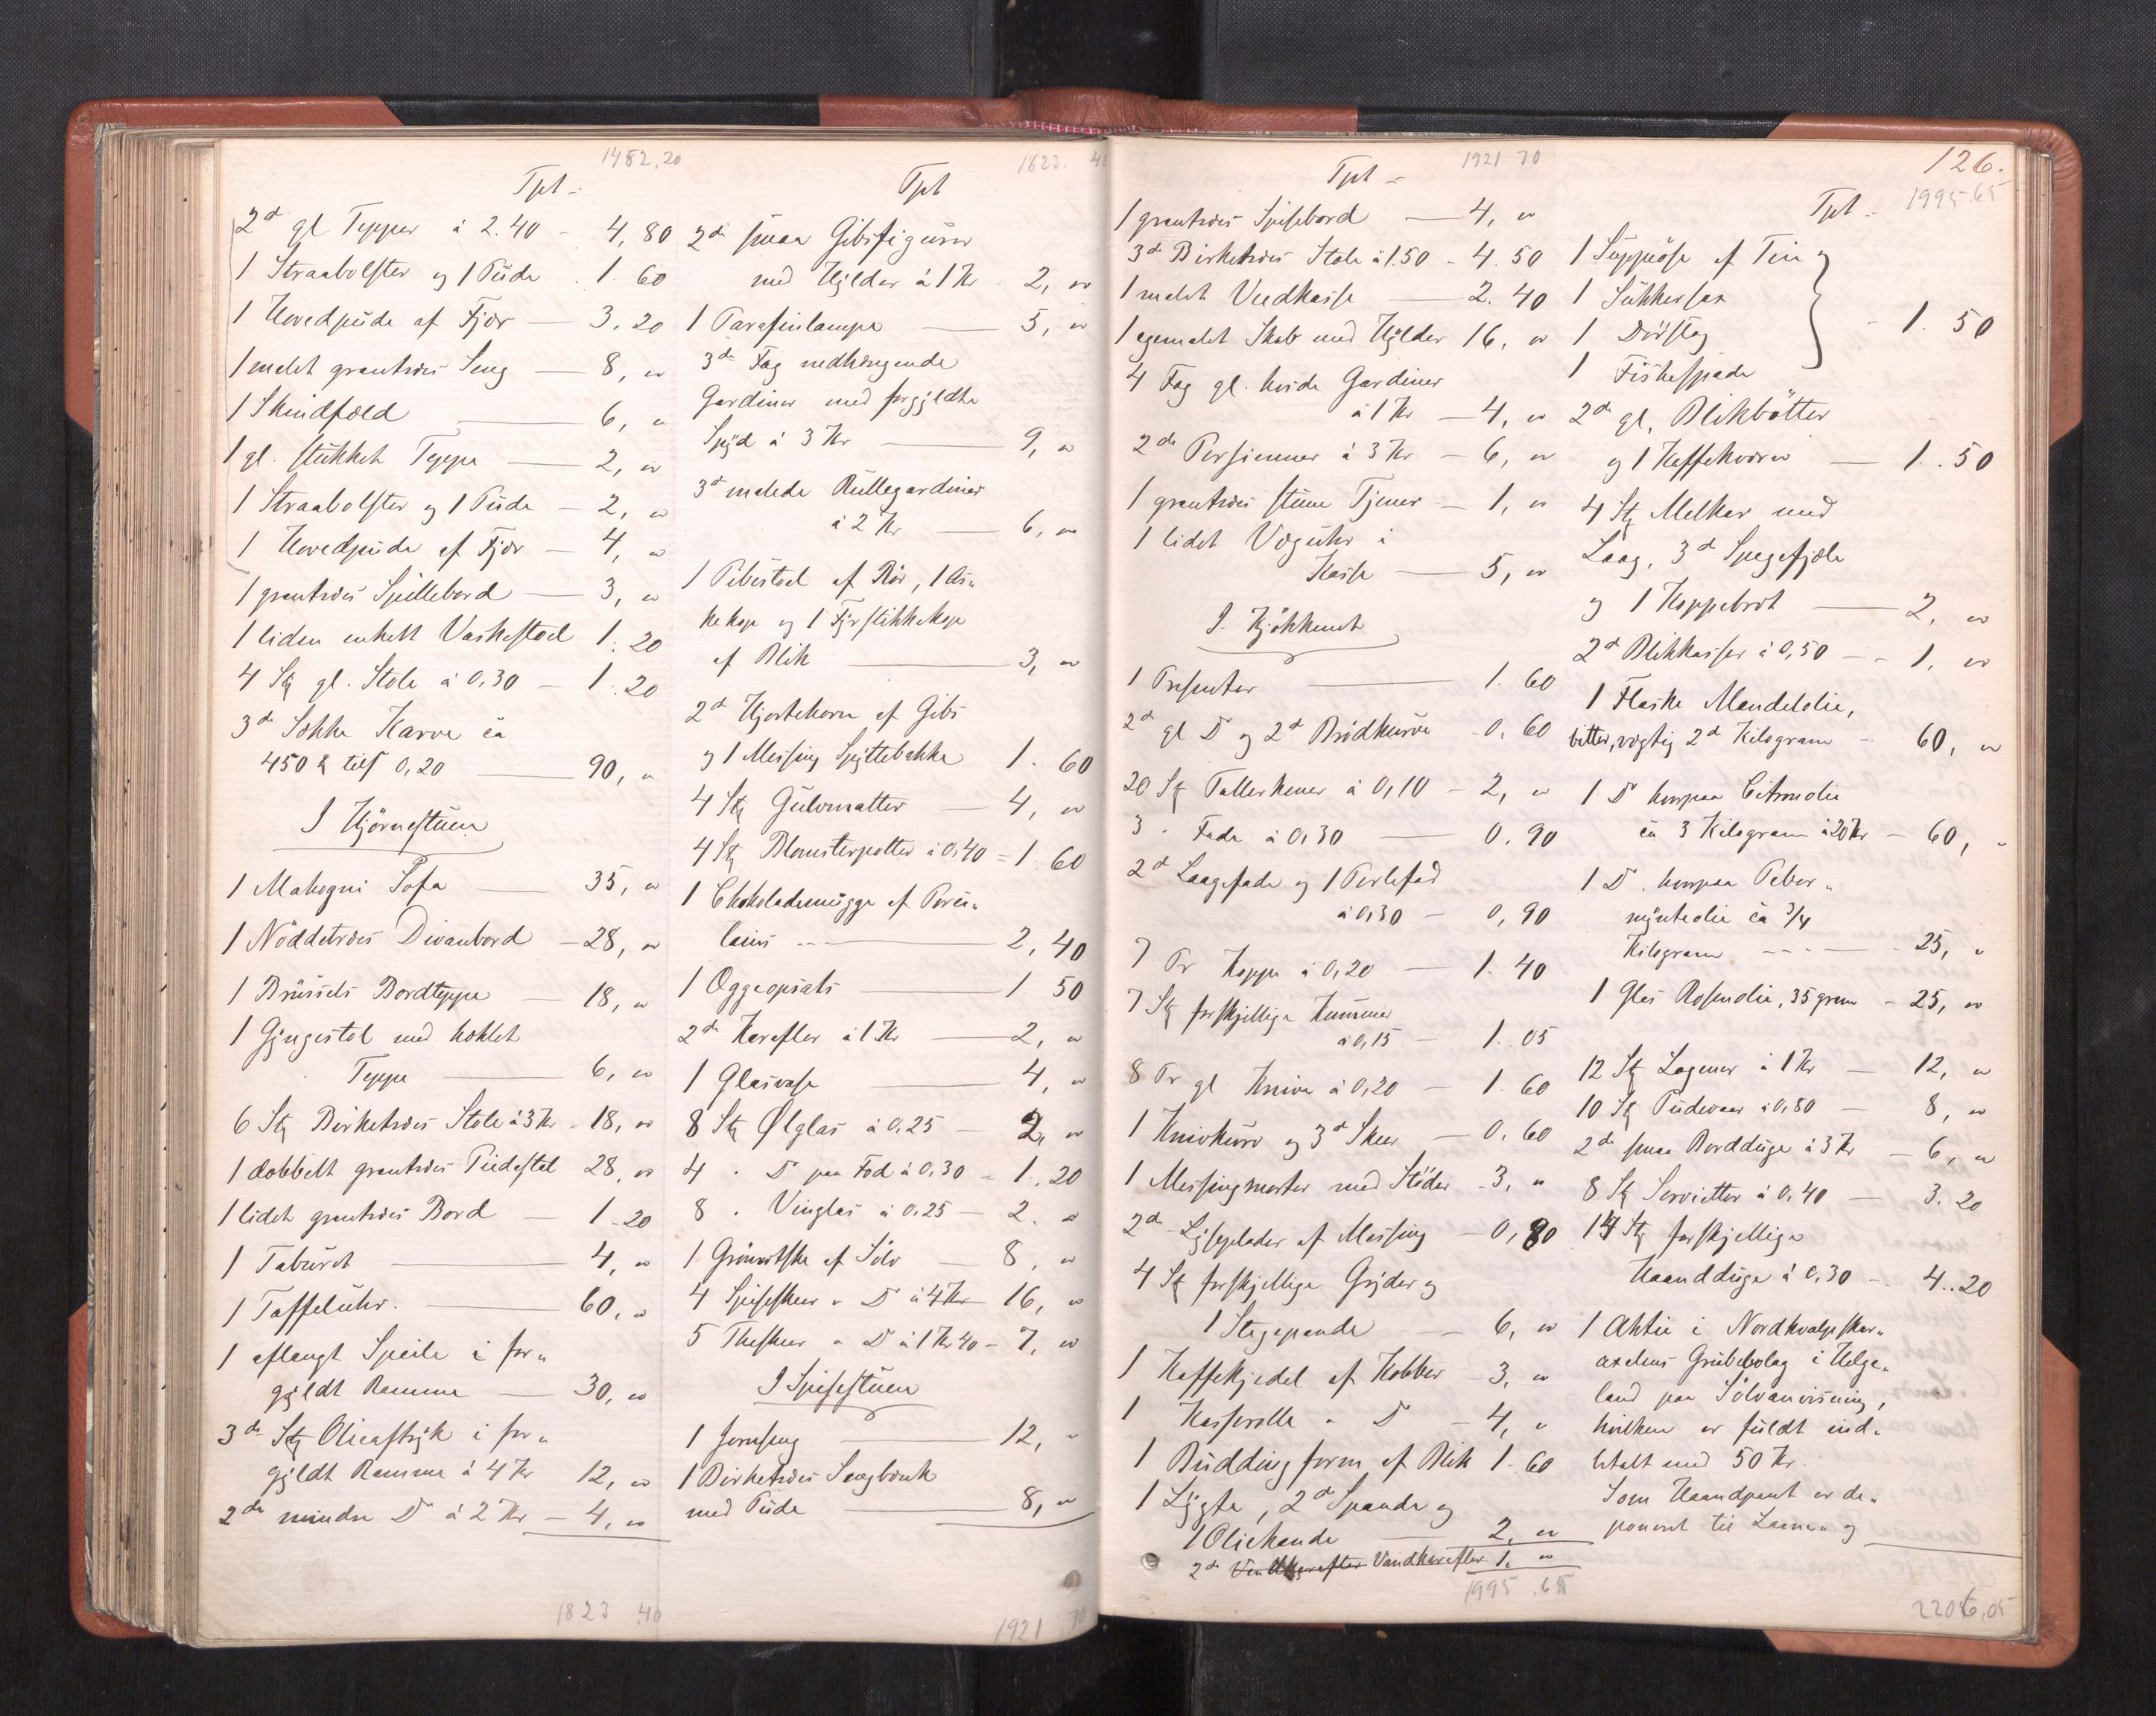 1482,20
Tpt -
2de gl Tepper à 2.40 - 4,80
1 Straabolster og 1 Pude - 1. 60
1 Hovedpude af Fjær — 3,20
1 malet grantræs Seng — 8, "
1 Skindfæld — 6, "
1 gl. stukket Teppe — 2, "
1 Straabolster og 1 Pude — 2, "
1 Hovedpude af Fjær — 4, "
1 grantræs Spillebord — 3, "
1 liden enkelt Vaskestoel 1. 20
4 Stk gl. Stole à 0,30 — 1. 20
3de Sække Karve ca
450 ℔ tils 0,20 — 90, "
I Hjörnestuen
1 Mahogni Sofa — 35, "
1 Nöddetræs Divanbord — 28, "
1 Brüssels Bordteppe — 18, "
1 Gyngestol med heklet
Teppe — 6, "
6 Stk Birketræs Stole à 3 Kr - 18, "
1 dobbelt grantræs Piedestal 28, "
1 lidet grantræs Bord — 1. 20
1 Taburet — 4, "
1 Taffeluhr. — 60, "
1 aflangt Speile i for„
gyldt Ramme — 30, "
3de Stk Olieastryk i for„
gyldt Ramme à 4 Kr 12, "
2de mindre Do à 2 Kr — 4, "
1823 40
1823. 40
Tpt
2de smaa Gibsfigurer
med Hylder à 1 Kr 2, "
1 Parafinlampe — 5, "
3de Fag nedhængende
Gardiner med forgyldte
Spyd à 3 Kr — 9, "
3de malede Rullegardiner
à 2 Kr — 6, "
1 Pibestoel af Rör, 1 As„
kekop og 1 Fyrstikkekop
af Blik — 3, "
2de Hjortehorn af Gibs
og 1 Messing Spyttebakke 1. 60
4 Stk Gulvmatter — 4, "
4 Stk Blomsterpotter à 0,40 = 1. 60
1 Chokolademugge af Porce„
lains — 2,40
1 Oggeopsats — 1 50
2de Karafler à 1 Kr — 2, "
1 Glasvase — 4, "
8 Stk Ølglas à 0,25 — 2, "
4 " Do paa Fod à 0,30 - 1. 20
8 " Vinglas à 0,25 — 2. "
1 Grönsaks af Sölv — 8, "
4 Spiseskeer " Do à 4 Kr — 16, "
5 Theskeer " Do à 1 Kr 40 - 7, "
I Spisestuen
1 Jernseng — 12, "
1 Birketræs Sengbænk
med Pude — 8, "
1921 70
1921 70
Tpt -
1 grantræs Spisebord — 4, "
3de Birketræs Stole à 1.50 - 4. 50
1 malet Vedkasse — 2. 40
1 egemalet Skab med Hylder 16, "
4 Fag gl. hvide Gardiner
à 1 Kr — 4, "
2de Persienner à 3 Kr — 6, "
1 grantræs stum Tjener — 1, "
1 lidet Væguhr i
Kasse — 5, "
I Kjökkenet
1 Presenter — 1. 60
2de gl Do og 2de Brödkurve - 0. 60
20 Stk Tallerkener à 0,10 - 2, "
3 " Fade à 0,30 — 0. 90
2de Laagefade og 1 Perlefad
à 0,30 — 0, 90
7 Pr Kopper à 0,20 — 1. 40
7 Stk forskjellige Kummer
à 0,15 — 1. 05
8 Pr gl Knive à 0,20 — 1. 60
1 Knivkurv og 3de Skeer — 0. 60
1 Messingmorter med Stöder - 3, "
2de Lyseplader af Messing — 0,80
4 Stk forskjellige Gryder og
1 Stegepande — 6, "
1 Kaffekjedel af Kobber - 3, "
1 Kasserolle " Do - 4, "
1 Buddingform af Blik 1. 60
1 Lygte, 2de Spande og
1 Oliekande — 2, "
2de Vandkarafler 1. "
1995. 65
126.
1995.65
Tpt -
1 Suppeöse af Tin og
1 Sukkersax
1 Dörslag
1 Fiskespade
- 1. 50
2de gl. Blikbötter
og 1 Kaffekværn — 1. 50
4 Stk Melkar med
Laag, 3de Spegefjæle
og 1 Koppebræt — 2, "
2de Blikkasser à 0,50 - - 1, "
1 Flaske Mandelolie,
bitter, vægtig 2de Kilogram - 60, "
1 Do hvorpaa Citronolie
ca 3 Kilogram à 20 Kr - 60, "
1 Do. hvorpaa Peber„
mynteolie ca 3/4
Kilogram - - - 25, "
1 Glas Rosenolie, 35 gram - 25, "
12 Stk Lagener à 1 Kr — 12, "
10 Stk Pudevaar à 0,80 — 8, "
2de smaa Bordduge à 3 Kr — 6, "
8 Stk Servietter à 0,40 — 3. 20
14 Stk forskjellige
Haandduge à 0,30 — 4. 20
1 Aktie i
Grubebolag i Helge„
land paa Sölvanvisning,
hvilken er fuldt ind„
betalt med 50 Kr.
Som Haandpant er de„
poneret til Laane„ og
2206,05